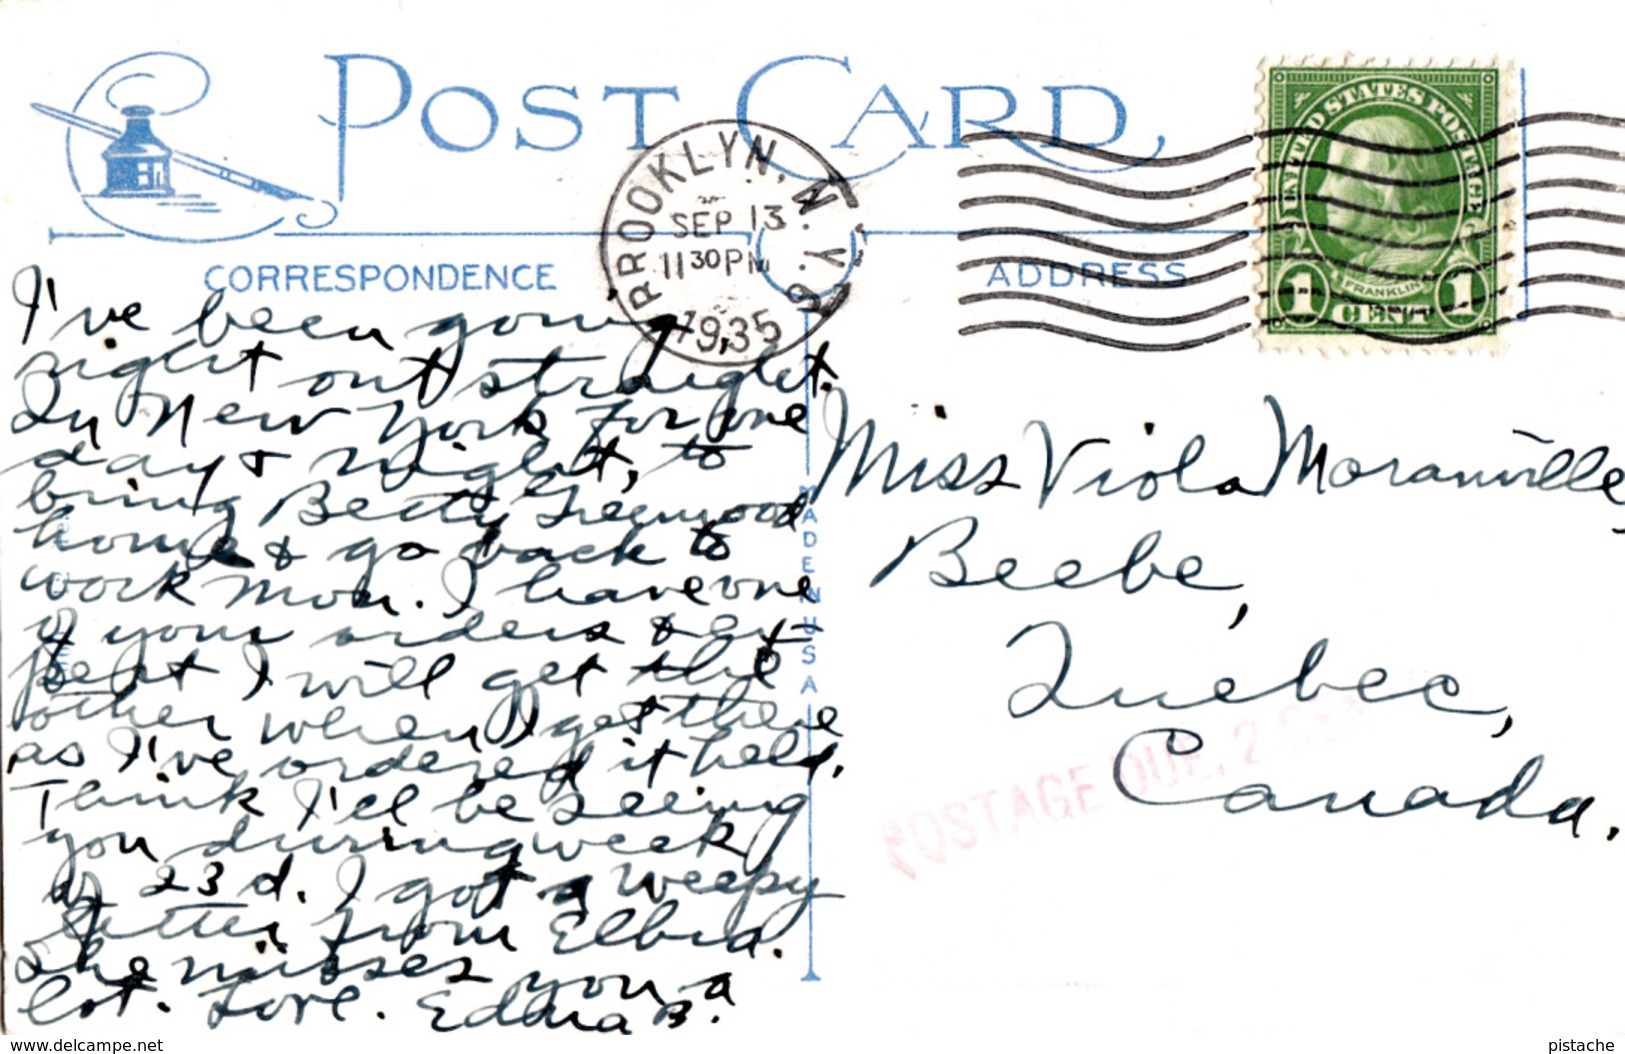 POST CARD
CORRESPONDENCE
ADDRESS
BROOKLYN, N.Y. 9
SEP 13
11 30 PM
1935
UNITED STATES POSTAGE
FRANKLIN
1 CENT 1
MADE IN U.S.A.
POSTAGE DUE, 2 CEN
I've been going
right out straight.
In New York for one
day & night, to
bring Betty Greenwood
home & go back to
work Mon. I have one
of your orders & ex-
pect I will get the
other when I get there
as I've ordered it held.
Think I'll be seeing
you during week
of 23d. I got a weepy
letter from Elbra.
She misses you a
lot. Love. Edna B.
Miss Viola Moranville,
Beebe,
Quebec,
Canada.
www.delcampe.net
pistache